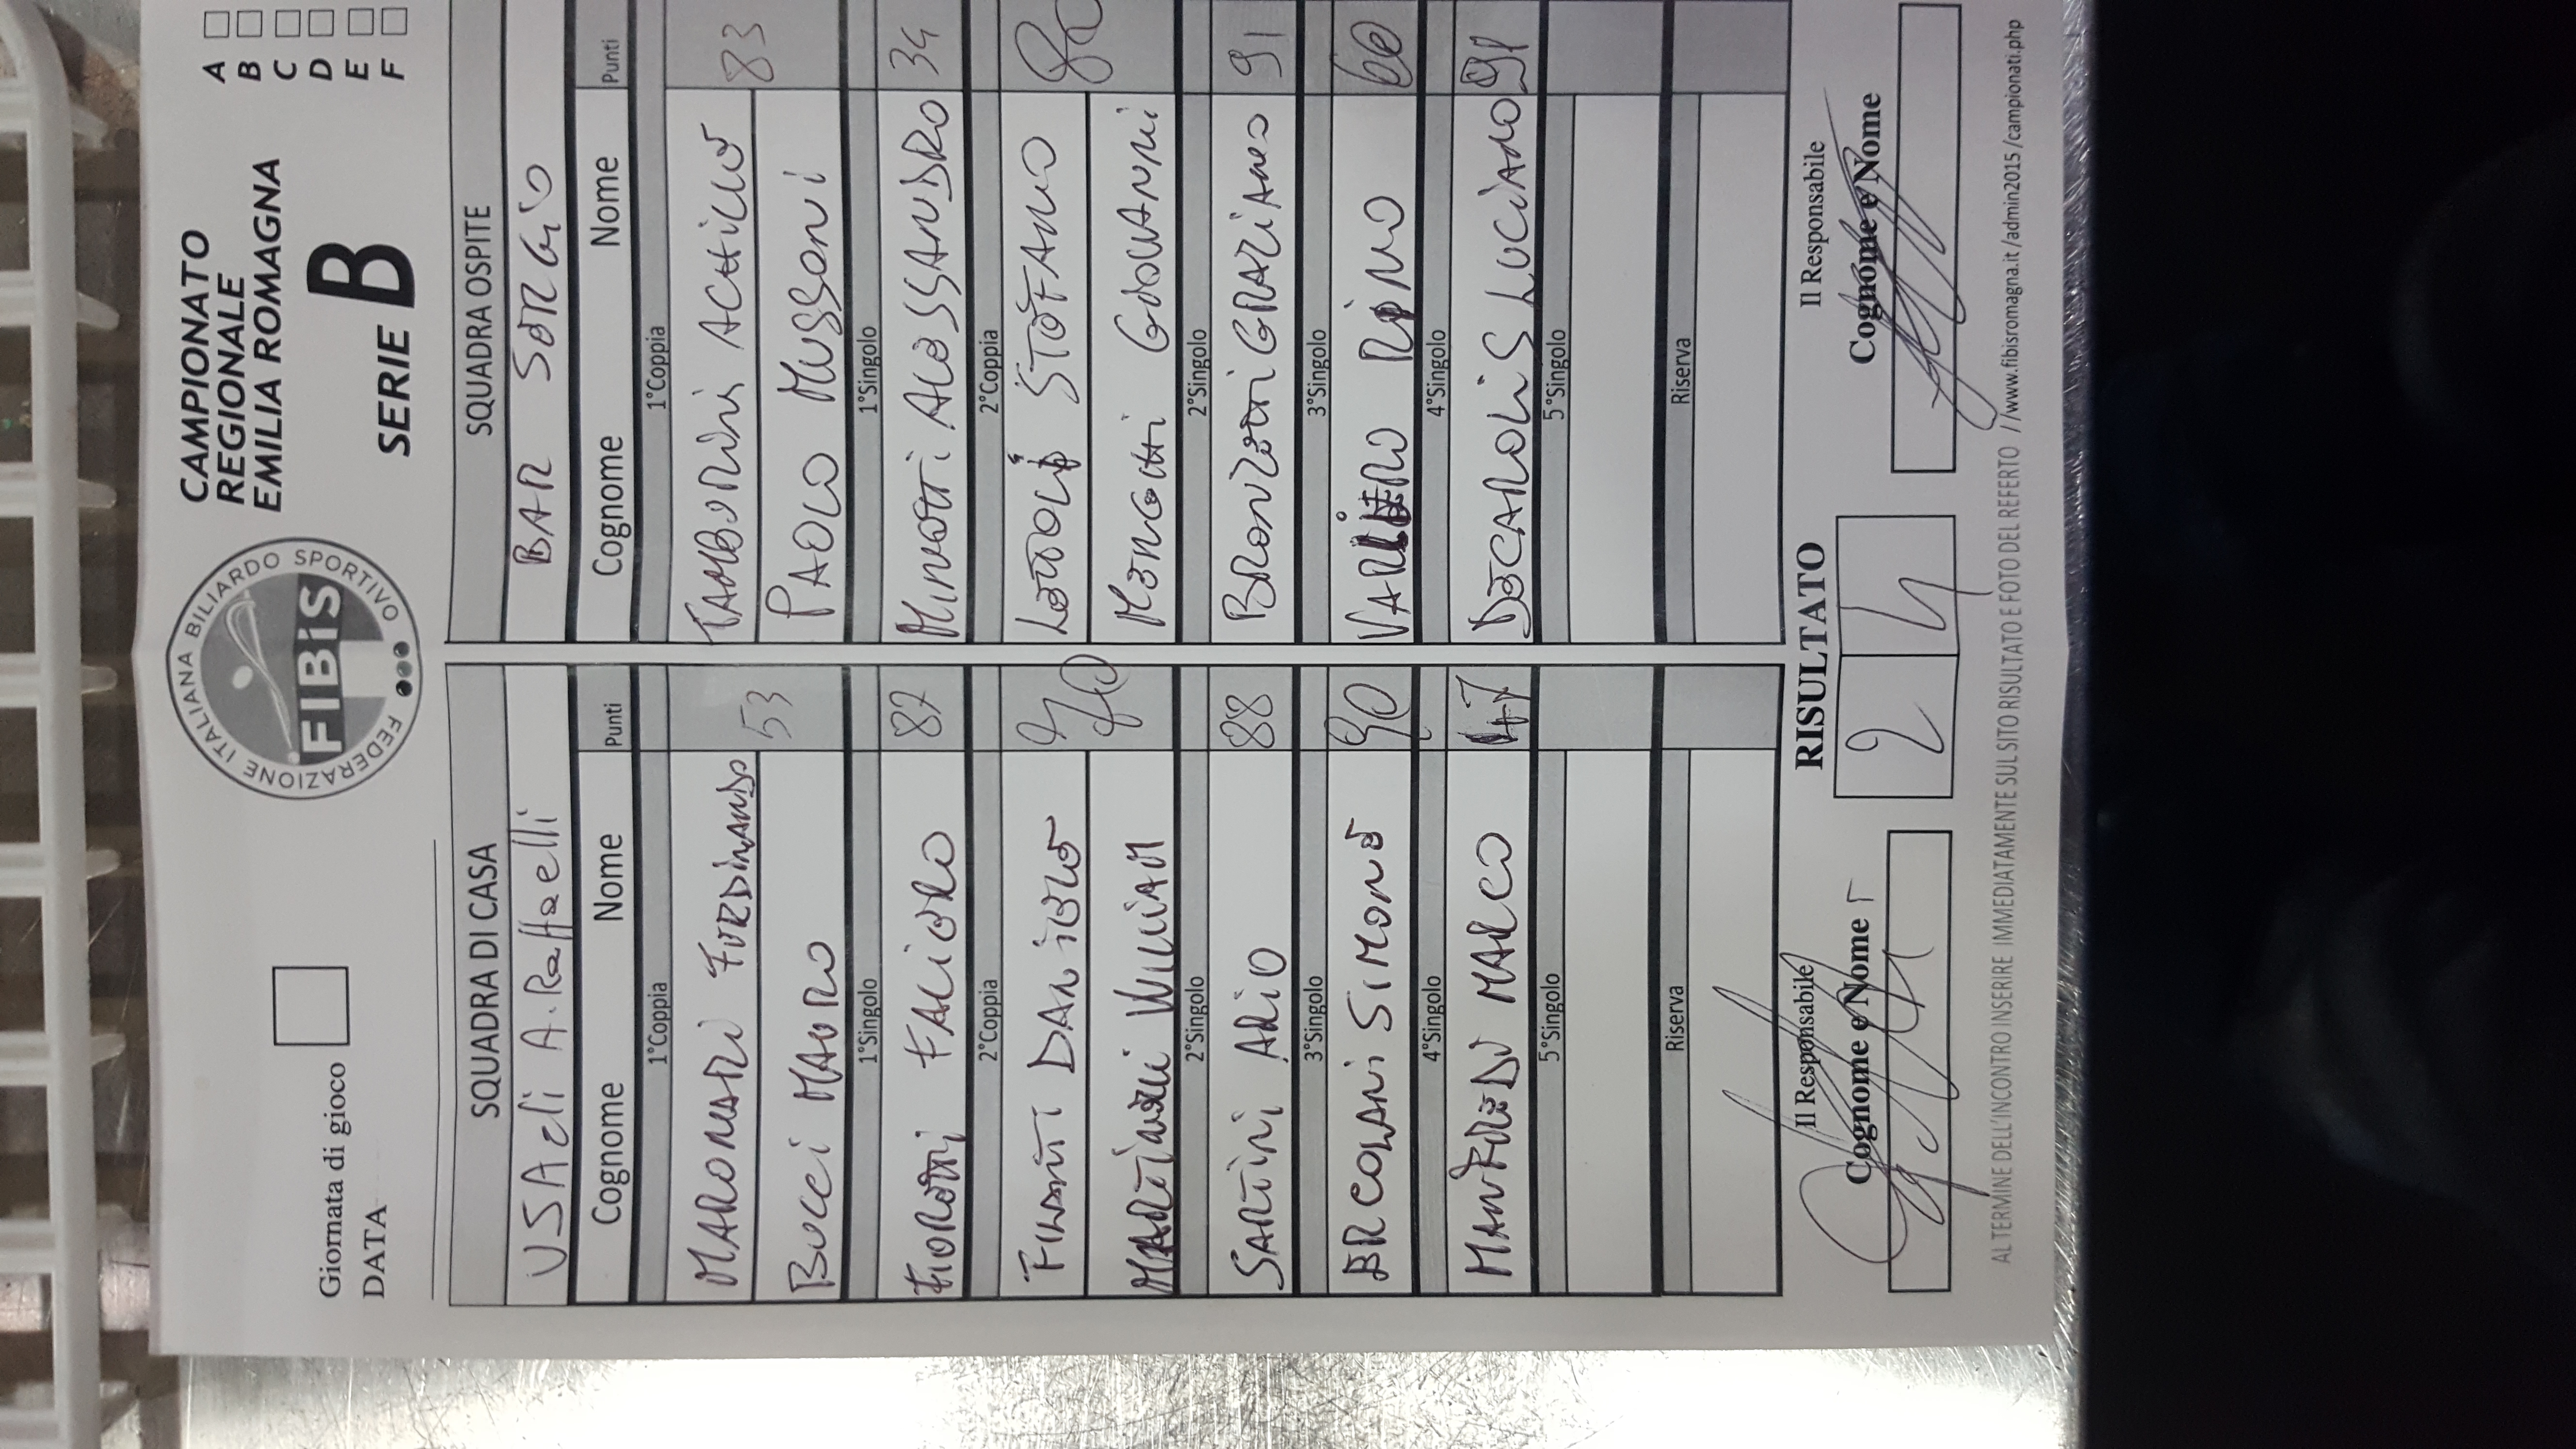 Giornata di gioco
DATA
FEDERAZIONE ITALIANA BILIARDO SPORTIVO
FIBiS
CAMPIONATO
REGIONALE
EMILIA ROMAGNA
SERIE B
A
B
C
D
E
F
SQUADRA DI CASA SQUADRA OSPITE
US Acli A. Raffaelli BAR SERGIO
Cognome Nome Punti Cognome Nome Punti
1°Coppia 1°Coppia
FERDINANDO 53 TAMBURINI ACHILLE 83
BUCCI MAURO PAOLO MUSSONI
1°Singolo 1°Singolo
FIORETTI 87 MINOTTI ALESSANDRO 34
2°Coppia 2°Coppia
DANIELE STEFANO
WILLIAM GIOVANNI
2°Singolo 2°Singolo
SARTINI 88 GRAZIANO 91
3°Singolo 3°Singolo
ERCOLANI SIMONE 90 60
4°Singolo 4°Singolo
MANFREDI MARCO 47 DECAROLIS LUCIANO 91
5°Singolo 5°Singolo
Riserva Riserva
Il Responsabile RISULTATO Il Responsabile
Cognome e Nome 2 4 Cognome e Nome
AL TERMINE DELL'INCONTRO INSERIRE IMMEDIATAMENTE SUL SITO RISULTATO E FOTO DEL REFERTO //www.fibisromagna.it/admin2015/campionati.php